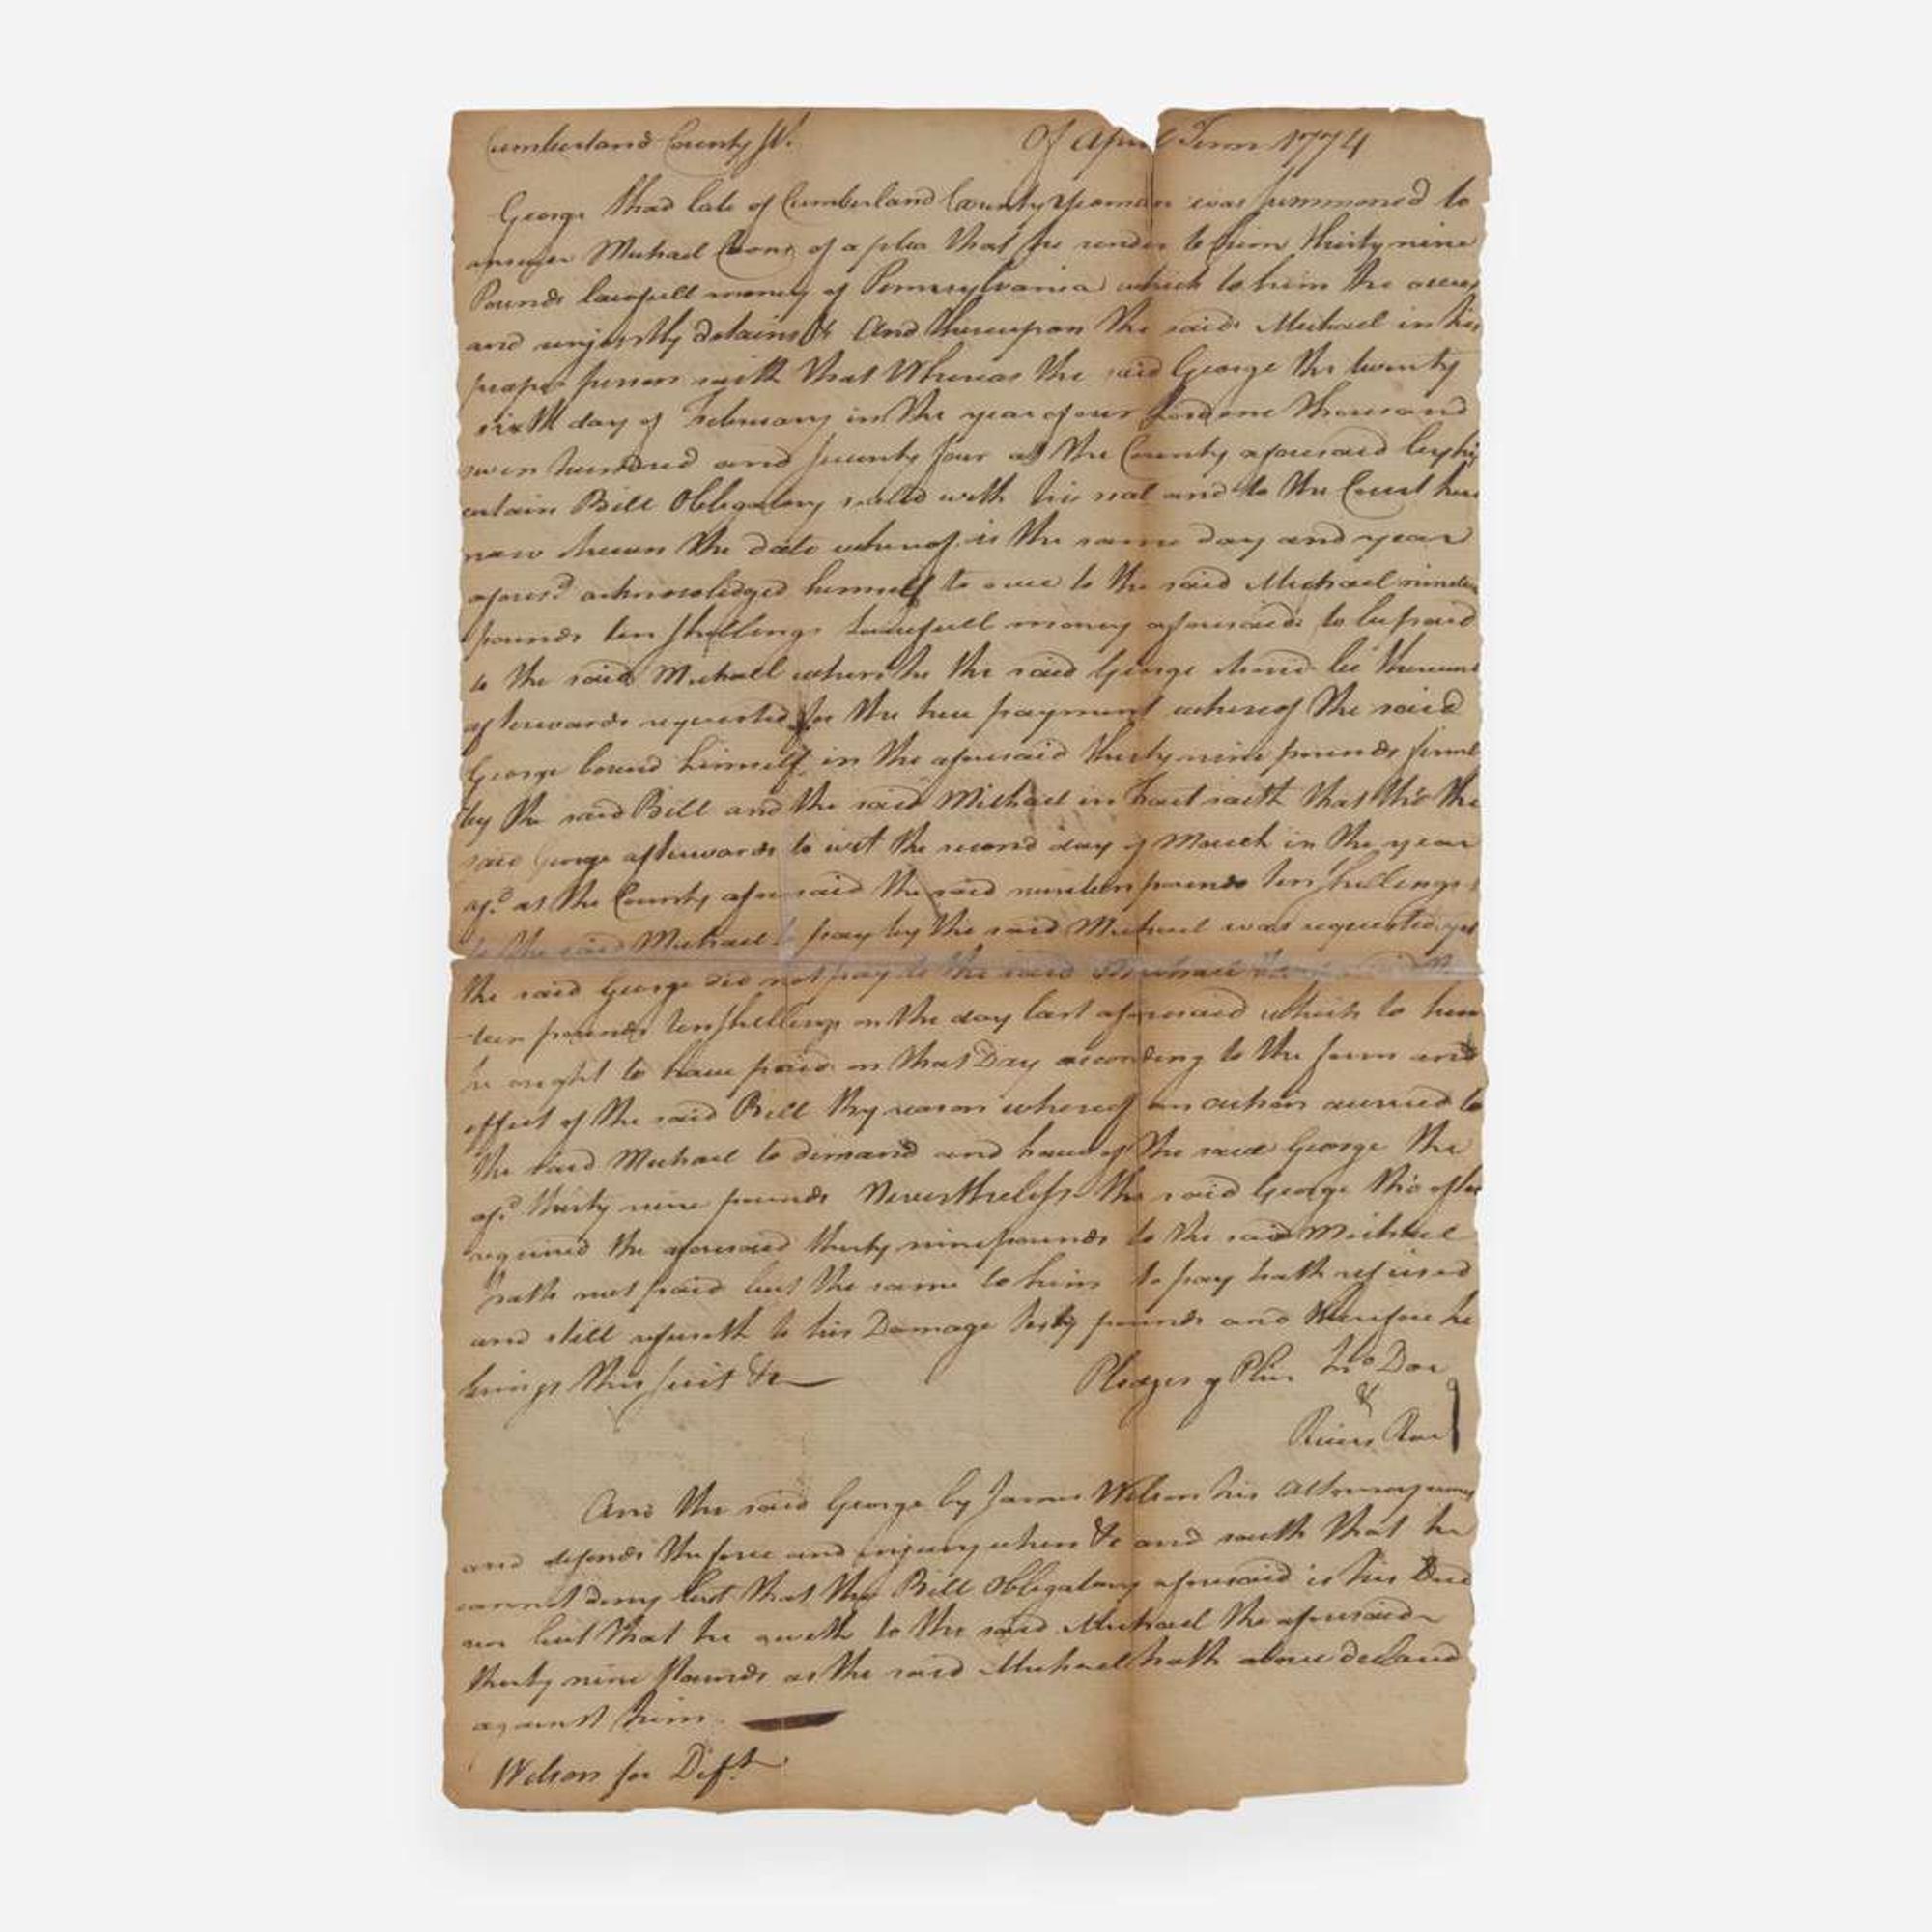 Cumberland County ss. Of April Term 1774
George Shad late of Cumberland County Yeoman was summoned to
answer Michael of a plea that he render to him thirty nine
Pounds lawfull money of Pennsylvania which to him he owes
and unjustly detains &c And thereupon the said Michael in his
proper person saith that Whereas the said George the twenty
sixth day of February in the year of our Lord one thousand
seven hundred and seventy four at the County aforesaid by his
certain Bill Obligatory sealed with his seal and to the Court here
now shewn the date whereof is the same day and year
aforesd. acknowledged himself to owe to the said Michael nineteen
pounds ten shillings lawfull money aforesaid to be paid
to the said Michael when he the said George shoud be thereunto
afterwards requested for the true payment whereof the said
George bound himself in the aforesaid thirty nine pounds
by the said Bill and the said Michael in Fact saith that tho' the
said George afterwards to wit the second day of March in the year
afd. at the County aforesaid the said nineteen pounds ten shillings
to the said Michael to pay by the said Michael was requested yet
the said George did not pay to the said Michael the said nine
-teen pounds ten shillings on the day last aforesaid which to him
he ought to have paid on that Day according to the form and
effect of the said Bill By reason whereof an action accrued to
the said Michael to demand and have of the said George the
afd. thirty nine pounds Nevertheless the said George tho' often
required the aforesaid thirty nine pounds to the said Michael
hath not paid but the same to him to pay hath refused
and still refuseth to his Damage pounds and therefore he
brings this suit &c Pledges of Jno Doe
&
Richd Roe
And the said George by James Wilson his Attorney comes
and defends the force and injury when &c and saith that he
cannot deny but that the Bill Obligatory aforesaid is his Deed
nor but that he oweth to the said Michael the aforesaid
thirty nine Pounds as the said Michael hath above declared
against him.
Wilson for Deft.